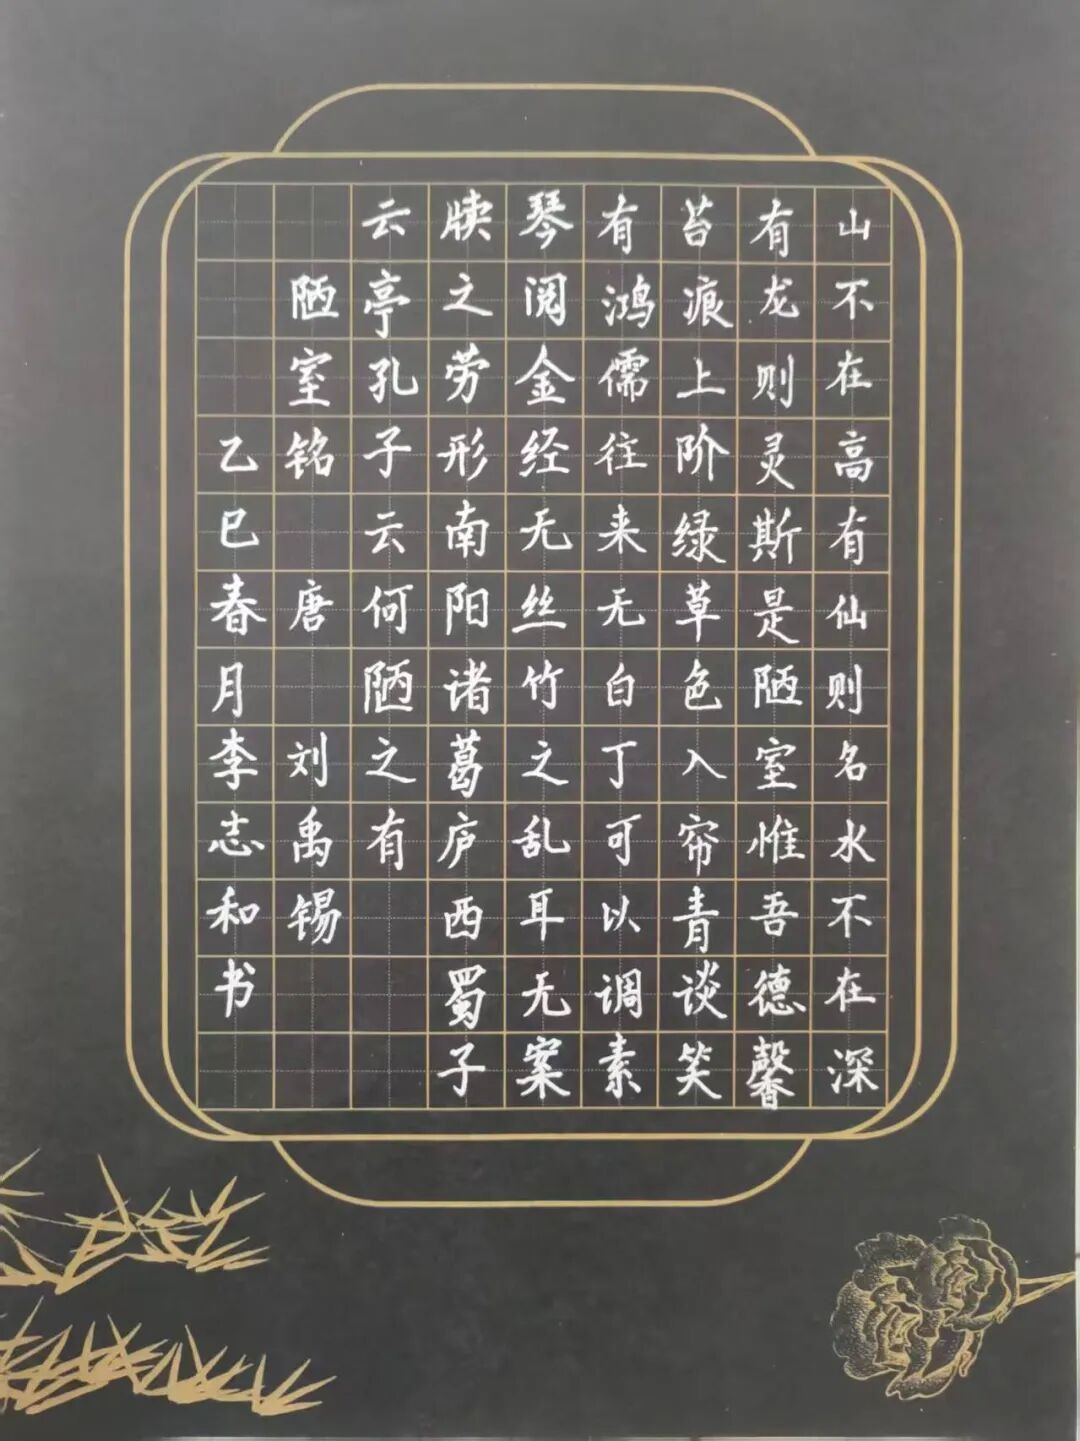 山不在高有仙则名水不在深
有龙则灵斯是陋室惟吾德馨
苔痕上阶绿草色入帘青谈笑
有鸿儒往来无白丁可以调素
琴阅金经无丝竹之乱耳无案
牍之劳形南阳诸葛庐西蜀子
云亭孔子云何陋之有
陋室铭 唐 刘禹锡
乙巳春月李志和书